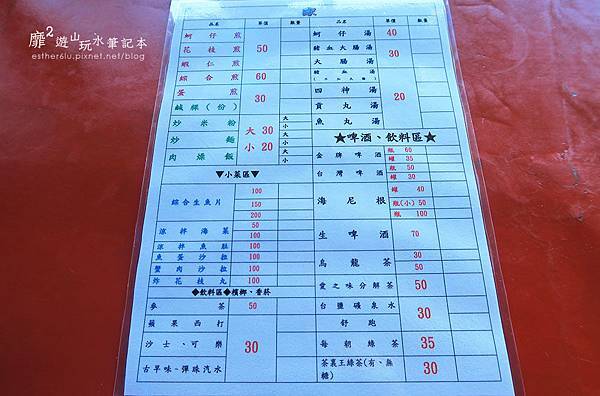 靡²遊山玩水筆記本
esther6lu.pixnet.net/blog
品名 單價 數量 品名 單價 數量
蚵仔煎
花枝煎 50
蝦仁煎
綜合煎 60
蛋煎 30
鹹粿(份)
炒米粉 大
小
炒麵 大 30 大
小 20 小
肉燥飯 大
小
▼小菜區▼
綜合生魚片 100
150
200
涼拌海菜 50
涼拌魚肚 100
魚蛋沙拉 100
蟹肉沙拉 100
炸花枝丸 100
◆飲料區◆檳榔、香菸
麥茶 50
蘋果西打
沙士、可樂 30
古早味~彈珠汽水
蚵仔湯 40
豬血大腸湯 30
大腸湯
豬血湯
四神湯 20
貢丸湯
魚丸湯
★啤酒、飲料區★
金牌啤酒 瓶 60
罐 35
台灣啤酒 瓶 50
罐 30
海尼根 罐 40
瓶(小) 50
瓶 100
生啤酒 70
烏龍茶 30
50
愛之味分解茶 50
台鹽礦泉水 30
舒跑
每朝綠茶 35
茶裏王綠茶(有、無糖) 30